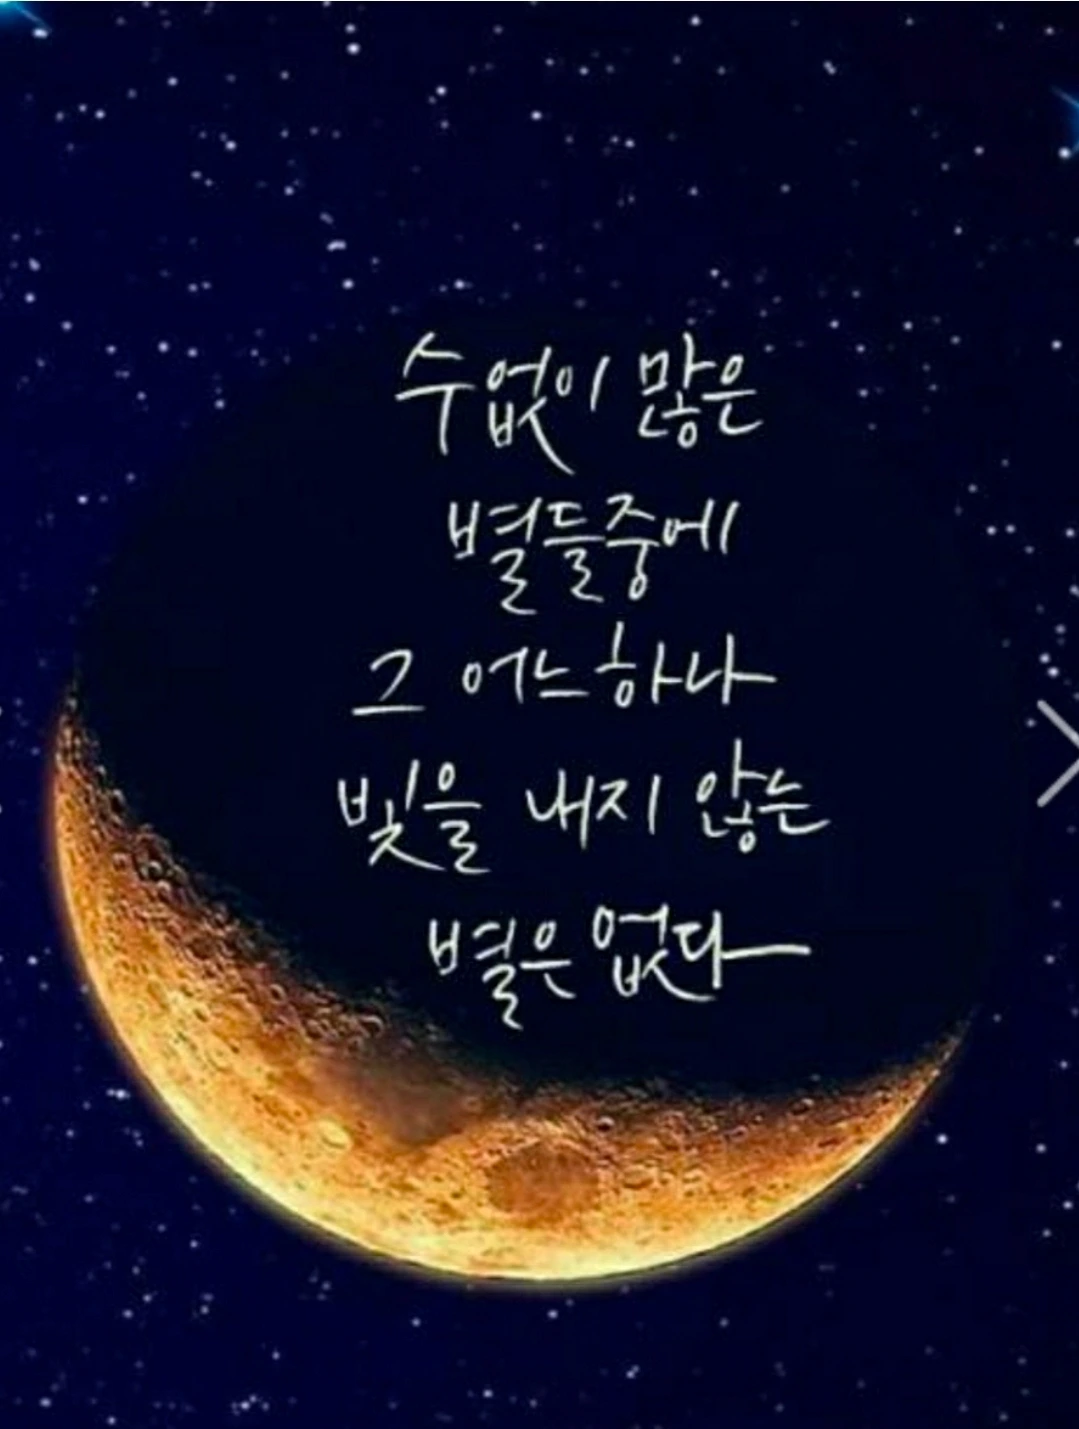 수없이 많은
별들중에
그 어느하나
빛을 내지 않는
별은 없다